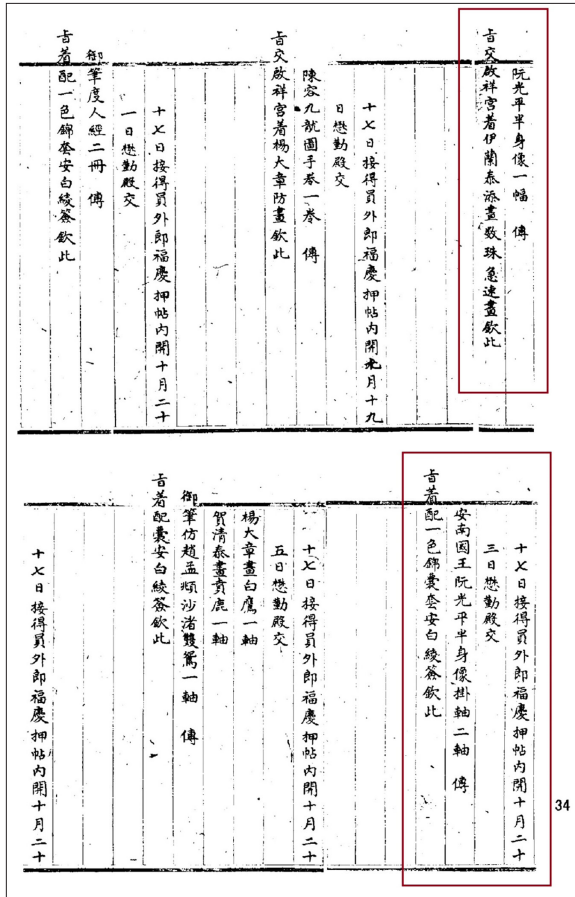 阮光平半身像一幅　傳
旨交啟祥宮着伊蘭泰添畫数珠急速畫欽此
十七日接得員外郎福慶押帖内開九月十九
日懋勤殿交
陳容九龍圖手卷一卷　傳
旨交啟祥宮着楊大章防畫欽此
十七日接得員外郎福慶押帖内開十月二十
一日懋勤殿交
御筆度人經二冊　傳
旨着配一色錦套安白綾簽欽此
十七日接得員外郎福慶押帖内開十月二十
三日懋勤殿交
安南國王阮光平半身像掛軸二軸　傳
旨着配一色錦囊套安白綾簽欽此
十七日接得員外郎福慶押帖内開十月二十
五日懋勤殿交
楊大章畫白鷹一軸
賀清泰畫賁鹿一軸
御筆仿趙孟頫沙渚雙鴛一軸　傳
旨着配囊安白綾簽欽此
十七日接得員外郎福慶押帖内開十月二十
34